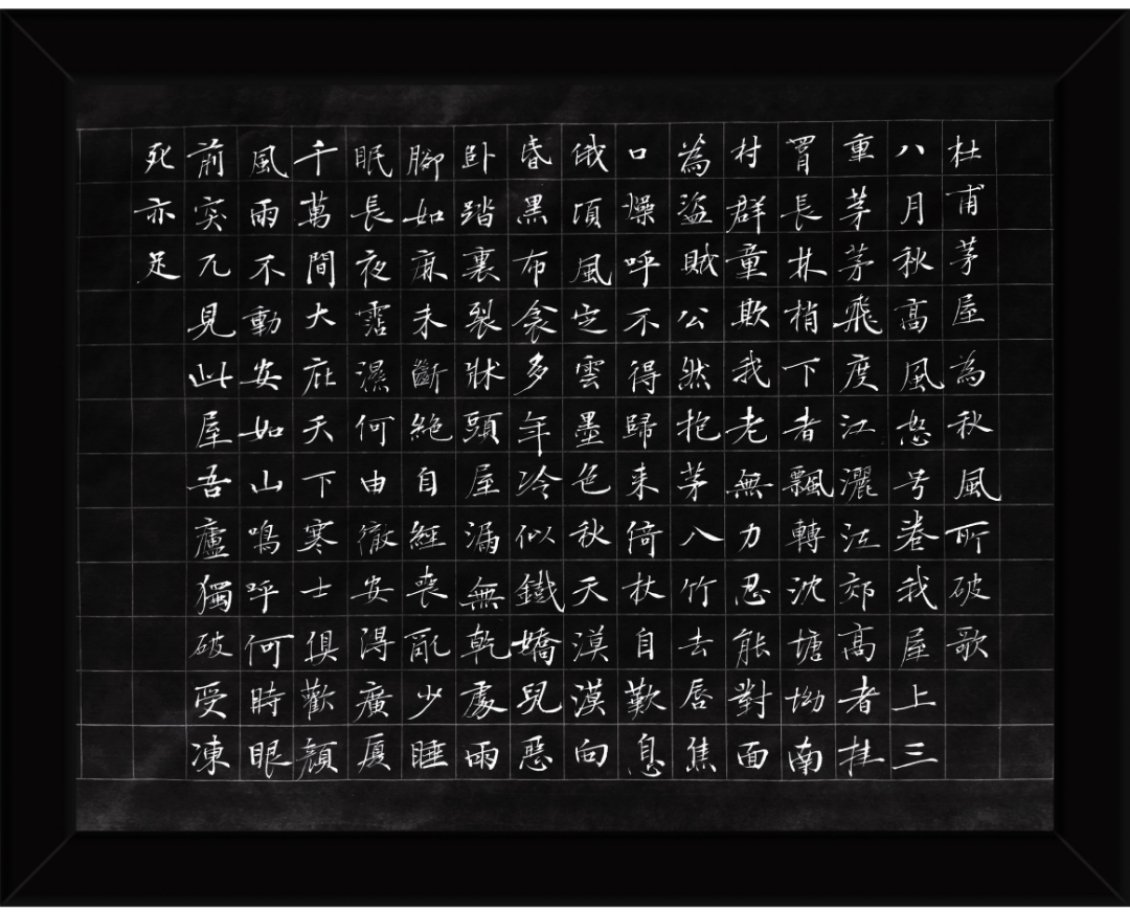 杜甫茅屋為秋風所破歌
八月秋高風怒号卷我屋上三
重茅茅飛度江灑江郊高者挂
罥長林梢下者飄轉沈塘坳南
村群童欺我老無力忍能對面
為盜賊公然抱茅入竹去唇焦
口燥呼不得歸来倚杖自歎息
俄頃風定雲墨色秋天漠漠向
昏黑布衾多年冷似鐵嬌兒惡
卧踏裏裂牀頭屋漏無乾處雨
腳如麻未斷絕自經喪亂少睡
眠長夜霑濕何由徹安得廣厦
千萬間大庇天下寒士俱歡顏
風雨不動安如山鳴呼何時眼
前突兀見此屋吾廬獨破受凍
死亦足